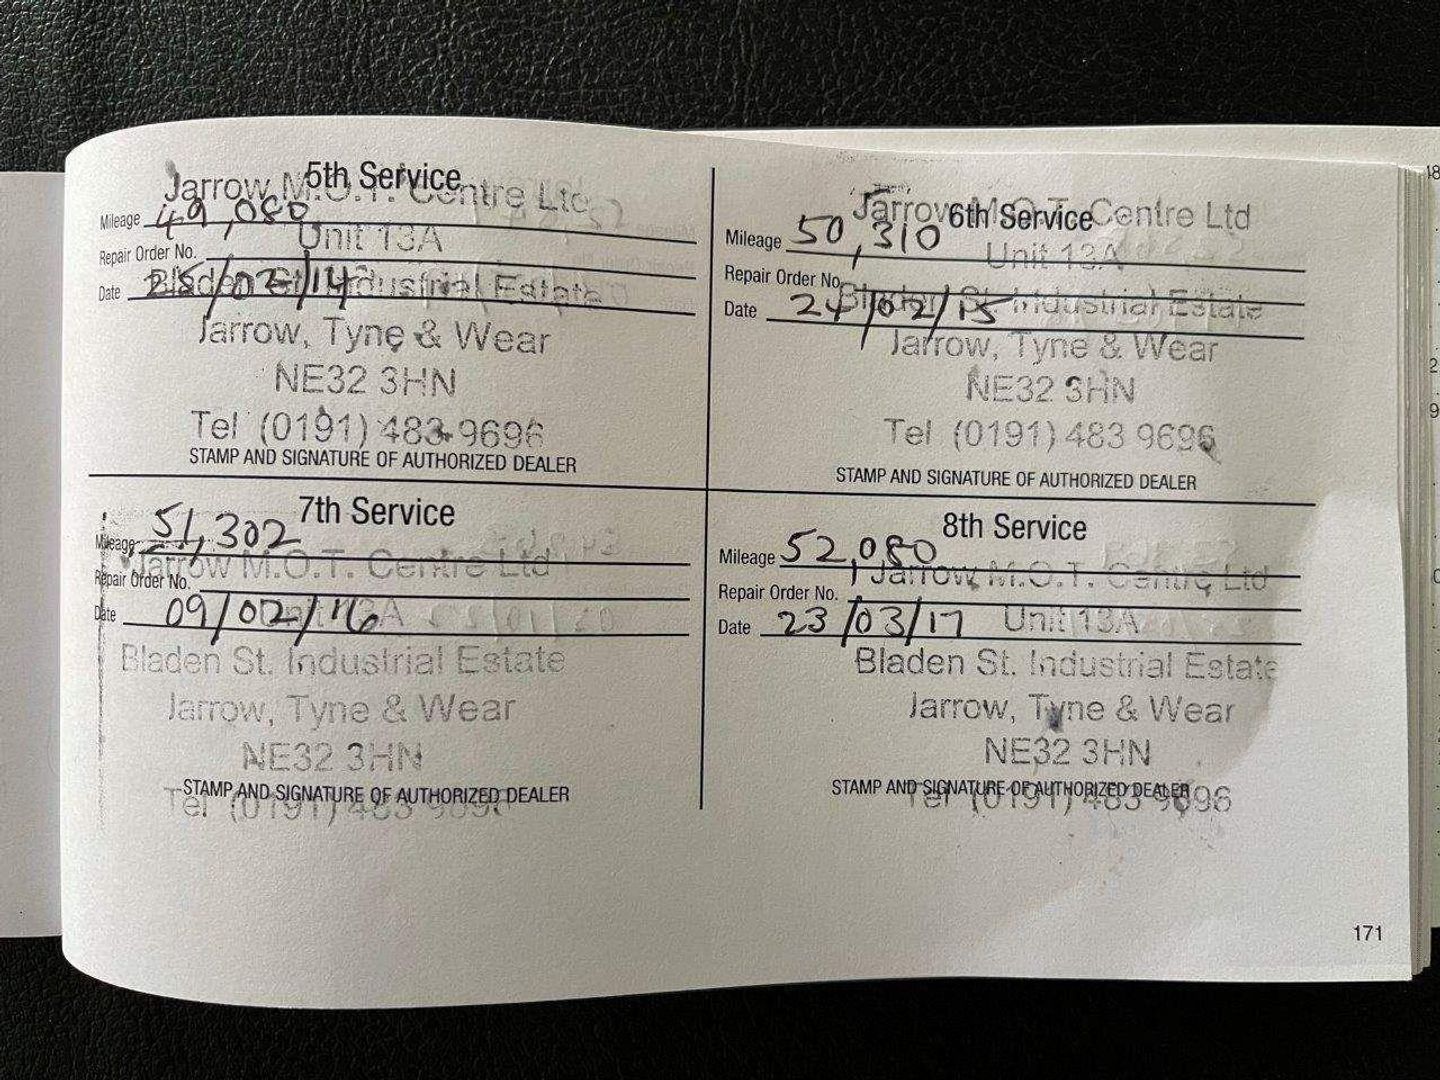 5th Service
Jarrow M.O.T. Centre Ltd
Mileage 49,080
Unit 13A
Repair Order No.
Bladen St. Industrial Estate
Date 25/02/14
Jarrow, Tyne & Wear
NE32 3HN
Tel (0191) 483 9696
STAMP AND SIGNATURE OF AUTHORIZED DEALER
6th Service
Jarrow M.O.T. Centre Ltd
Mileage 50,310
Unit 13A
Repair Order No.
Bladen St. Industrial Estate
Date 24/02/15
Jarrow, Tyne & Wear
NE32 3HN
Tel (0191) 483 9696
STAMP AND SIGNATURE OF AUTHORIZED DEALER
7th Service
Mileage 51,302
Jarrow M.O.T. Centre Ltd
Repair Order No.
Unit 13A
Date 09/02/16
Bladen St. Industrial Estate
Jarrow, Tyne & Wear
NE32 3HN
STAMP AND SIGNATURE OF AUTHORIZED DEALER
Tel (0191) 483 9696
8th Service
Mileage 52,080
Jarrow M.O.T. Centre Ltd
Repair Order No.
Unit 13A
Date 23/03/17
Bladen St. Industrial Estate
Jarrow, Tyne & Wear
NE32 3HN
STAMP AND SIGNATURE OF AUTHORIZED DEALER
Tel (0191) 483 9696
171